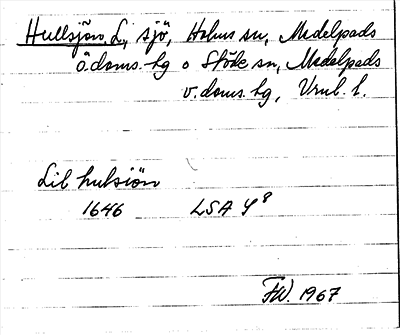 Hullsjön, L., sjö, Holms sn, Medelpads
ö. doms. hg o Stöde sn, Medelpads
v. doms. hg, Vnrl. l.
Lil hulsiön
1646 LSA Y 8
FW. 1967